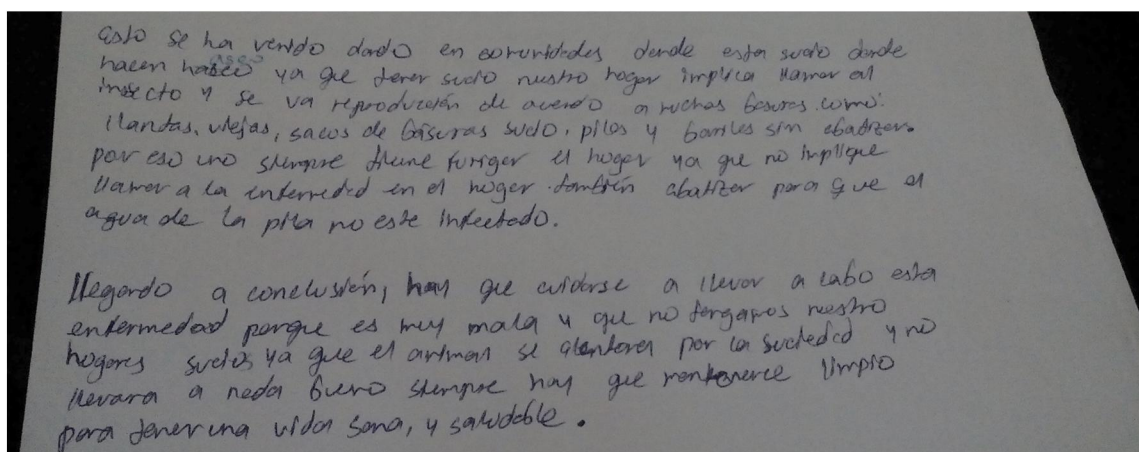 Esto se ha venido dado en comunidades donde esta sucio donde
hacen haseo ya que tener sucio nuestro hogar implica llamar al
insecto y se va reproducción de acuerdo a muchas basuras como:
llantas, viejas, sacos de básuras sucio, pilos y barriles sin abatizer.
por eso uno siempre tiene fumiger el hogar ya que no implique
llamar a la enfermedad en el hogar también abatizer para que el
agua de la pila no este infectado.
llegando a conclusión, hay que cuidarse a llevar a cabo esta
enfermedad porque es muy mala y que no tengamos nuestro
hogares sucios ya que el animal se alentara por la suciedad y no
llevara a nada bueno siempre hay que mantenerce limpio
para tener una vida sana, y saludable.